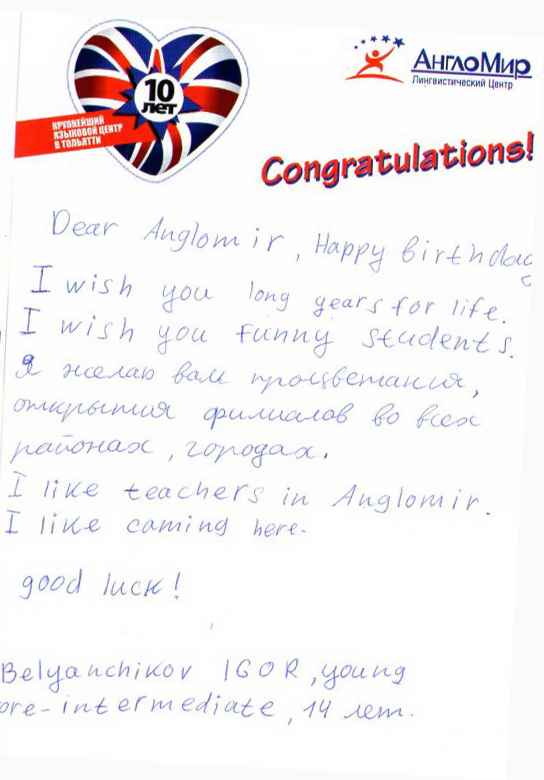 10
лет
КРУПНЕЙШИЙ
ЯЗЫКОВОЙ ЦЕНТР
В ТОЛЬЯТТИ
АнглоМир
Лингвистический Центр
Congratulations!
Dear Anglomir, Happy birthday
I wish you long years for life.
I wish you funny students.
Я желаю вам процветания,
открытия филиалов во всех
районах, городах.
I like teachers in Anglomir.
I like caming here.
good luck!
Belyanchikov IGOR, young
pre-intermediate, 14 лет.